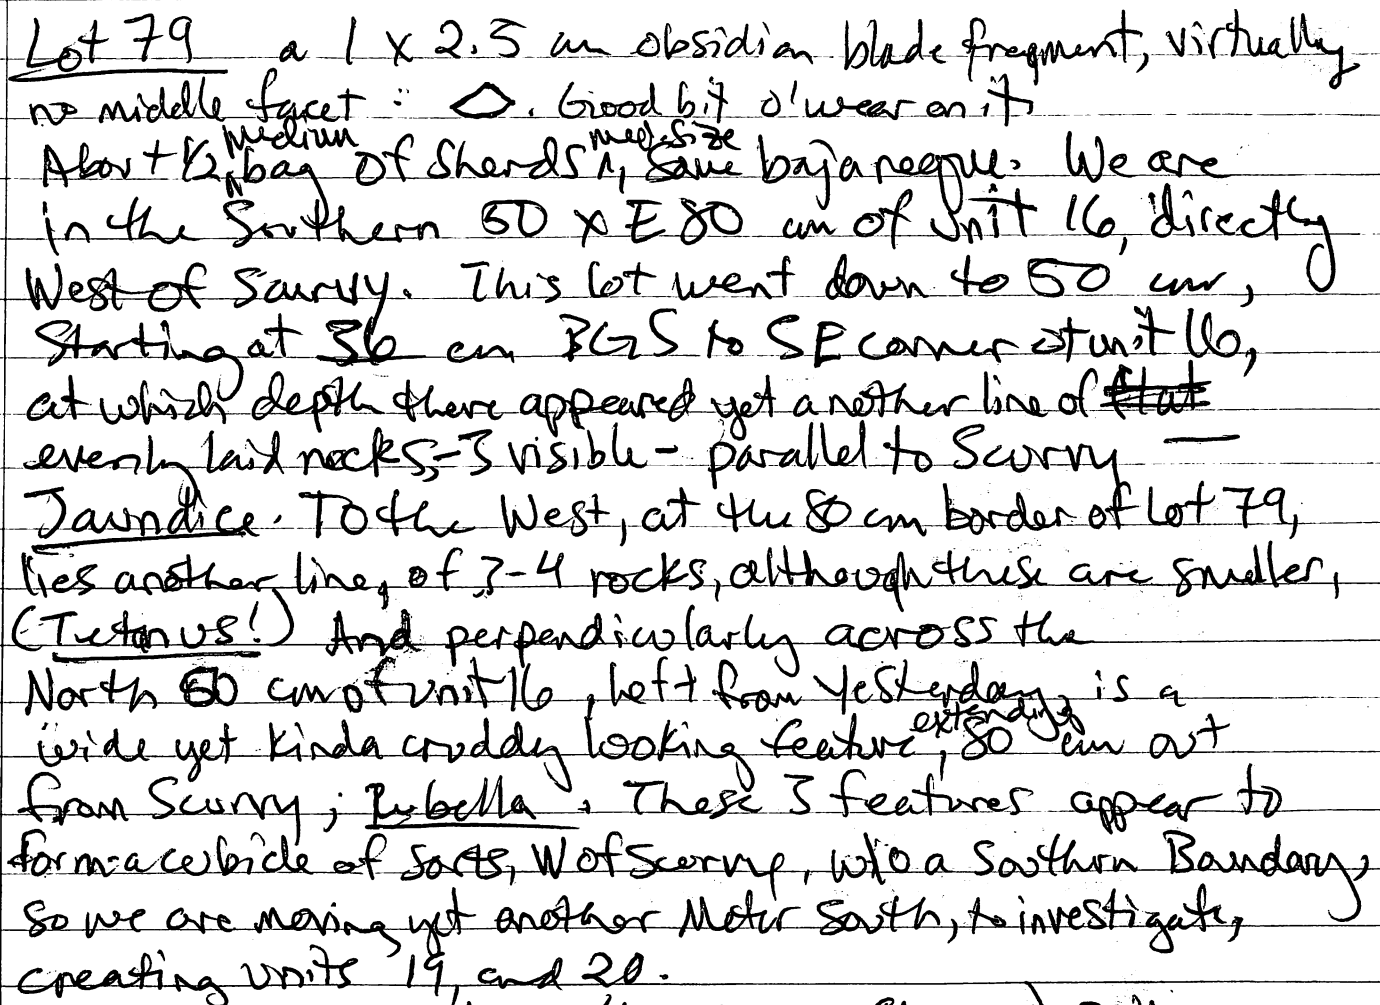 Lot 79 a 1 x 2.5 cm obsidian blade fragment, virtually
no middle facet: . Good bit o' wear on it.
About 1/2 medium bag of sherds, med. size, some bajareque. We are
in the Southern 50 x E 80 cm of unit 16, directly
West of Scurvy. This lot went down to 50 cm,
Starting at 36 cm BGS to SE corner of unit 16,
at which depth there appeared yet another line of flat
evenly laid rocks, - 3 visible - parallel to Scurvy —
Jaundice. To the West, at the 80 cm border of Lot 79,
lies another line, of 3-4 rocks, although these are smaller,
(Tetanus!) And perpendicularly across the
North 50 cm of unit 16, left from Yesterday, is a
wide yet kinda cruddy looking feature, extending 80 cm out
from Scurvy; Rubella. These 3 features appear to
form a cubicle of sorts, W of Scurvy, w/o a Southrn Boundary,
so we are moving yet another Meter South, to investigate,
creating units 19, and 20.